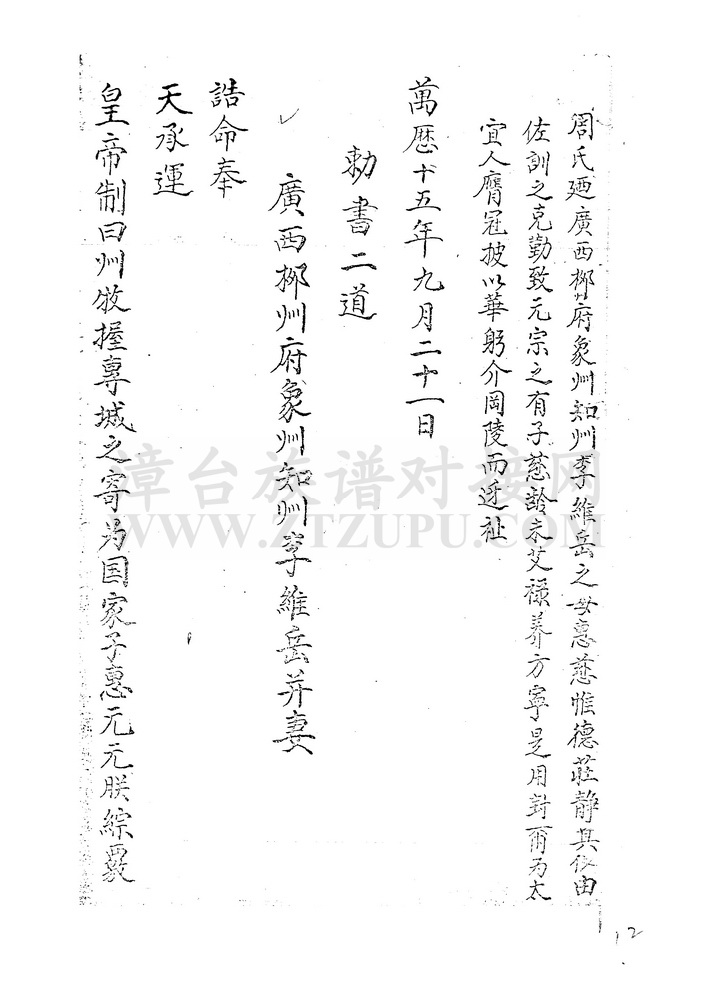 周氏廼廣西柳府象州知州李維岳之母惠慈惟德莊靜其儀由
佐訓之克勤致元宗之有子慈齡未艾禄养方寧是用封爾为太
宜人膺冠披以華躬介岡陵而迓祉
萬歷十五年九月二十一日
勅書二道
廣西柳州府象州知州李維岳并妻
誥命奉
天承運
皇帝制曰州牧握專城之寄为国家子惠元元朕綜覈
漳台族谱对接网
WWW.ZTZUPU.COM
12